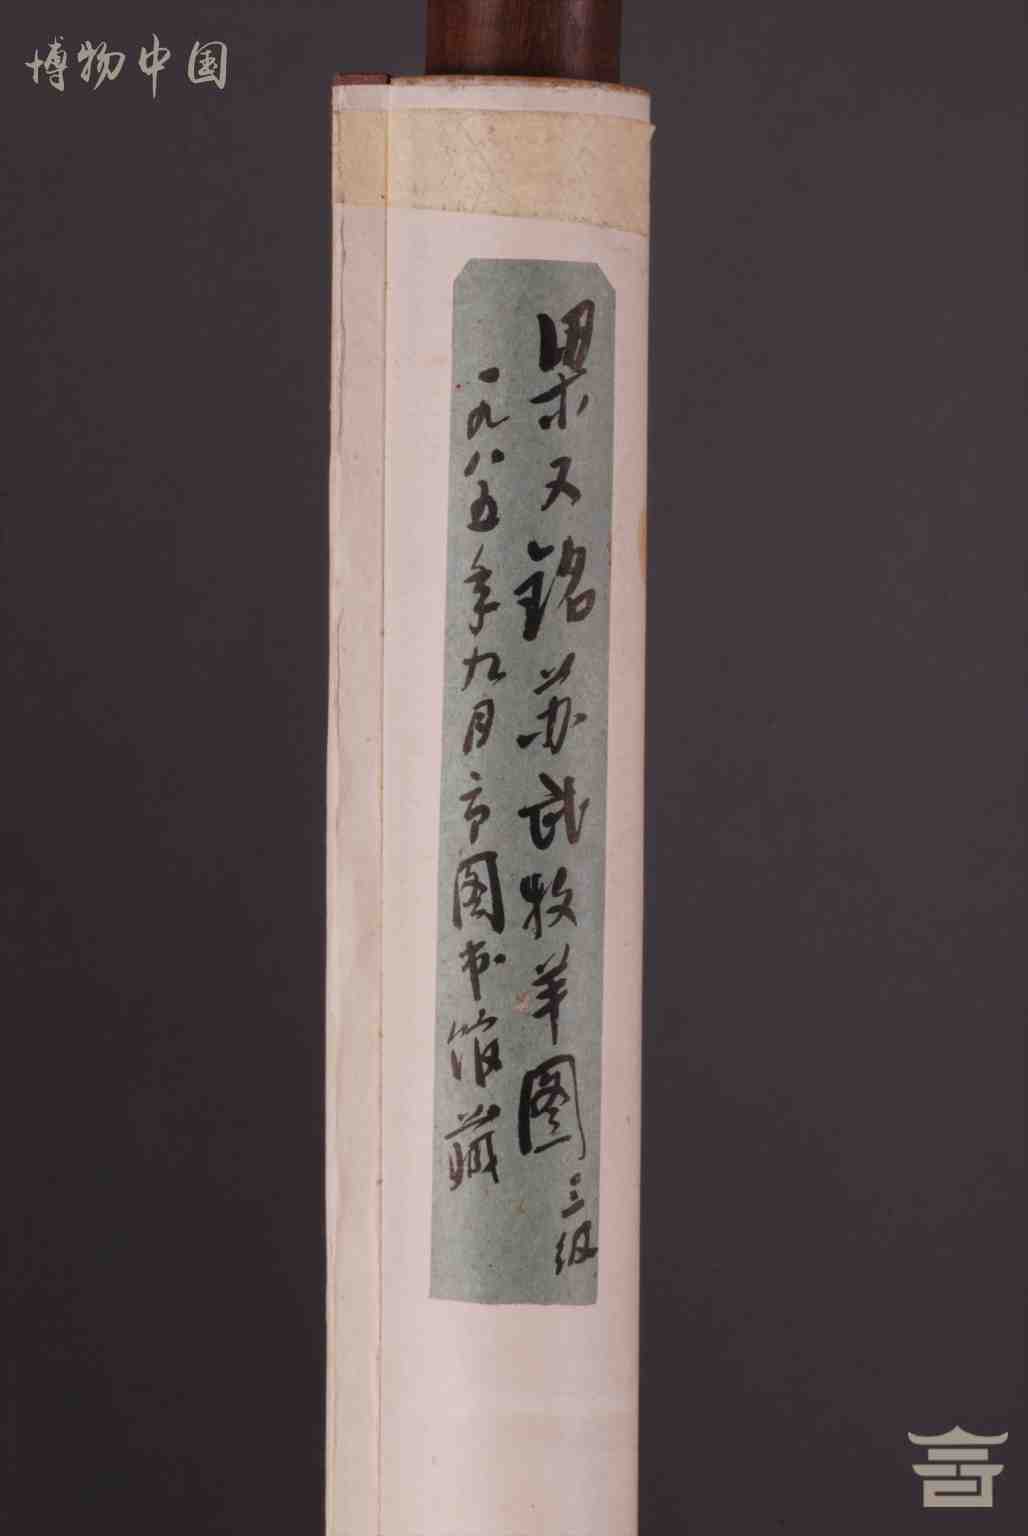 博物中国
梁又铭苏武牧羊图 三级
一九八五年九月市图书馆藏